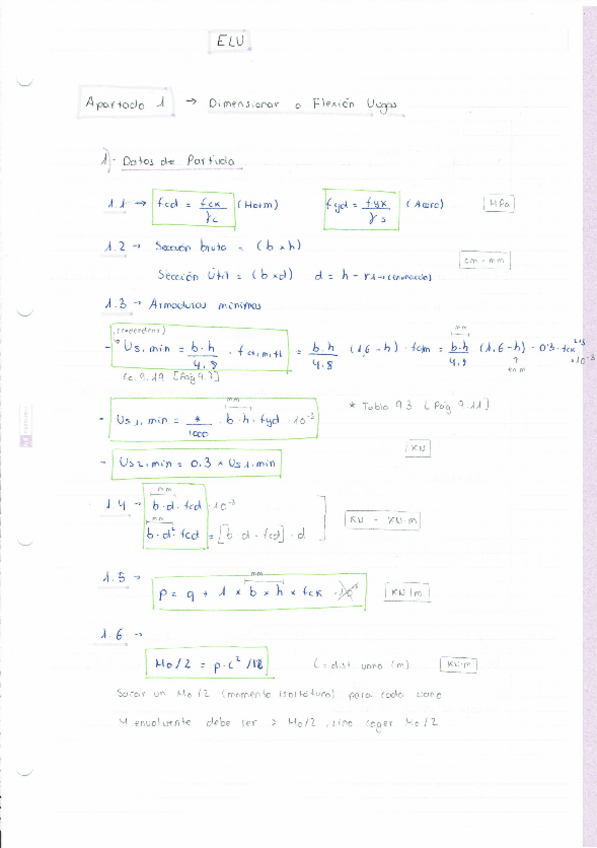 ELU
Apartado 1 → Dimensionar a Flexión Vigas
1)- Datos de Partida
1.1 → fcd = fck / γc (Horm) fyd = fyk / γs (Acero) MPa
1.2 → Sección bruta = (b × h) cm - mm
Sección Útil = (b × d) d = h -
1.3 → Armaduras mínimas
- Us1,min = b·h / 4,8 · fctm,fl = b·h / 4,8 (1,6 - h) · fctm = b·h / 4,8 (1,6 - h) · 0.3 · fck^2/3 · 10^-3
mm
? en m
(c. 9.19 [Pág 9.7]
mm
- Us1,min = * / 1000 · b · h · fyd · 10^-3 * Tabla 9.3 (Pág 9.11]
- Us2,min = 0.3 × Us1,min KN
mm
1.4 → b · d · fcd · 10^-3
mm
b · d² · fcd = [b · d · fcd] · d KN - KN·m
mm
1.5 → P = q + 1 × b × h × fck KN/m
1.6 →
Mo/2 = p · L² / 12 L = dist (m) KN·m
Sacar un Mo/2 (momento isostático) para cada vano
M envolvente debe ser > Mo/2, sino coger Mo/2